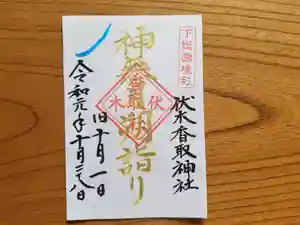 下総國境町
伏木香取神社
神無月詣り
伏木
香取
旧十月一日
令和元年十月二十八日